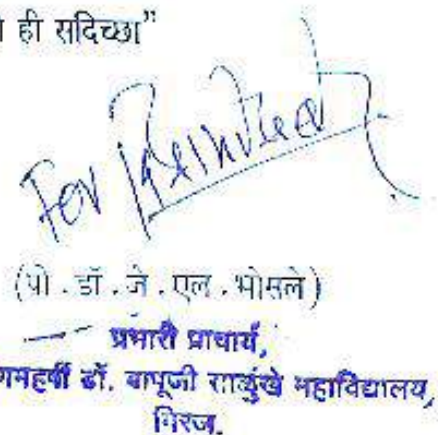 ही सदिच्छा”
For
(प्रो . डॉ . जे . एल . भोसले)
प्रभारी प्राचार्य,
डॉ. बापूजी साळुंखे महाविद्यालय,
मिरज.